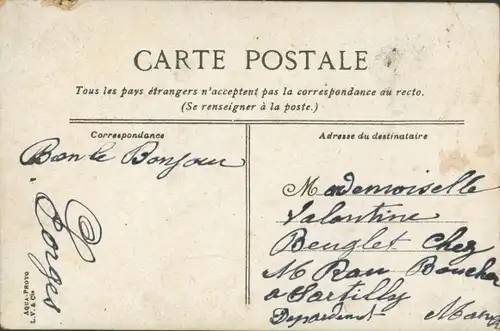 CARTE POSTALE
Tous les pays étrangers n'acceptent pas la correspondance au recto.
(Se renseigner à la poste.)
Correspondance
Bonjour
Georges
AQUA-PHOTO
L.V. & Cie
Adresse du destinataire
Mademoiselle
Valantine
Beuglet Chez
M Rau Boucher
a Sartilly
Departement